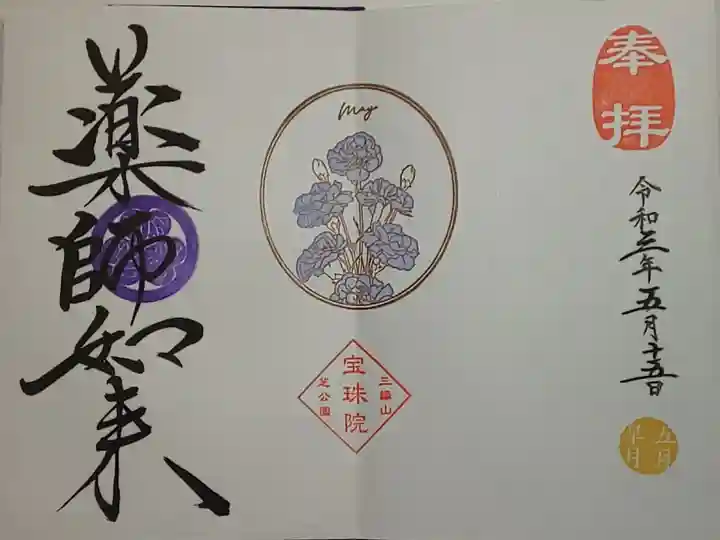 奉拝
令和三年五月十五日
五月
皐月
May
三縁山
宝珠院
芝公園
薬師如来